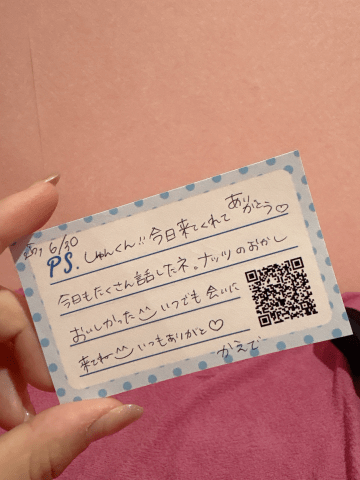 6/30
P.S. しゅんくん!! 今日来てくれて ありがとう♡
今日もたくさん話したネ。ナッツのおかし
おいしかった^^ いつでも会いに
来てねー^^ いつもありがと♡
かえで